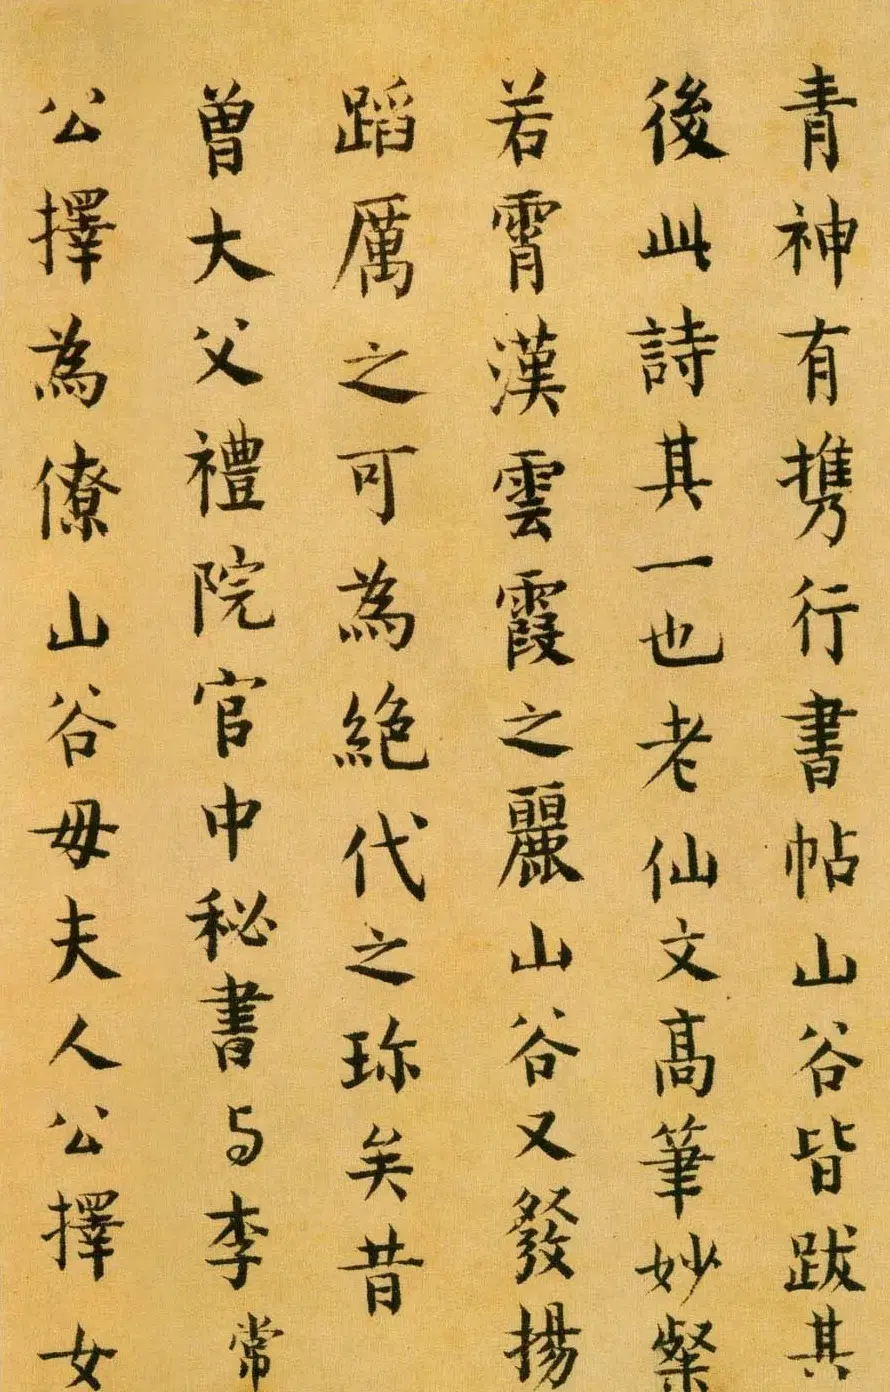 青神有攜行書帖山谷皆跋其
後此詩其一也老仙文高筆妙粲
若霄漢雲霞之麗山谷又發揚
蹈厲之可為絕代之珍矣昔
曾大父禮院官中秘書与李常
公擇為僚山谷母夫人公擇女